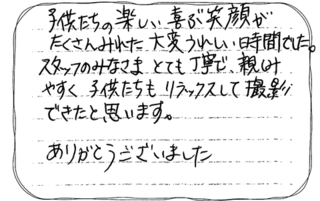 子供たちの楽しい喜ぶ笑顔が
たくさんみれた大変うれしい時間でした。
スタッフのみなさまとても丁寧で、親しみ
やすく子供たちもリラックスして撮影
できたと思います。
ありがとうございました